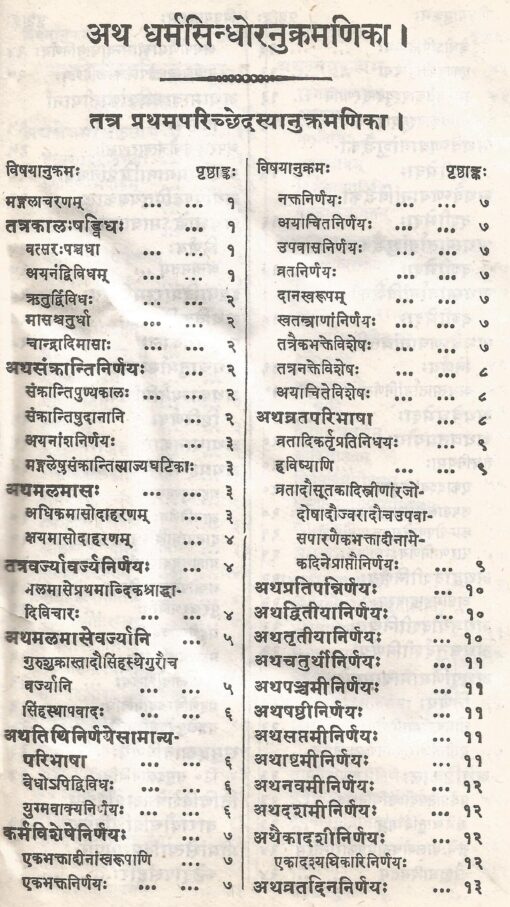 अथ धर्मसिन्धोरनुक्रमणिका।
तत्र प्रथमपरिच्छेदस्यानुक्रमणिका।
विषयानुक्रमः पृष्ठाङ्कः
मङ्गलाचरणम् ... ... १
तत्रकालःषड्विधः ... १
वत्सरःपञ्चधा ... ... १
अयनंद्विविधम् ... १
ऋतुर्द्विविधः ... २
मासश्चतुर्धा ... ... २
चान्द्रादिमासाः ... २
अथसंक्रान्तिनिर्णयः ... २
संक्रान्तिपुण्यकालः ... २
संक्रान्तिषुदानानि ... २
अयनांशनिर्णयः ... ३
मङ्गलेषुसंक्रान्तित्याज्यघटिकाः ३
अथमलमासः ... ... ३
अधिकमासोदाहरणम् ... ३
क्षयमासोदाहरणम् ... ४
तत्रवर्ज्यावर्ज्यनिर्णयः ... ४
मलमासेप्रथमाब्दिकश्राद्धा-
दिविचारः ... ... ४
अथमलमासेवर्ज्यानि ... ५
गुरुशुक्रास्तादौसिंहस्थेगुरौच
वर्ज्यानि ... ... ५
सिंहस्थापवादः ... ६
अथतिथिनिर्णयेसामान्य-
परिभाषा ... ... ६
वेधोऽपिद्विविधः ... ६
युग्मवाक्यनिर्णयः ... ६
कर्मविशेषेनिर्णयः ... ७
एकभक्तादीनांस्वरूपाणि ... ७
एकभक्तनिर्णयः ... ... ७
विषयानुक्रमः पृष्ठाङ्कः
नक्तनिर्णयः ... ... ७
अयाचितनिर्णयः ... ... ७
उपवासनिर्णयः ... ... ७
व्रतनिर्णयः ... ... ७
दानस्वरूपम् ... ... ७
स्वतन्त्राणांनिर्णयः ... ७
तत्रैकभक्तेविशेषः ... ७
तत्रनक्तेविशेषः ... ८
अयाचितेविशेषः ... ८
अथव्रतपरिभाषा ... ८
व्रतादिकर्तृप्रतिनिधयः
हविष्याणि ... ... ९
व्रतादौसूतकादिस्त्रीणांरजो-
दोषादौज्वरादौचउपवा-
सपारणैकभक्तादीनामे-
कदिनेप्राप्तौनिर्णयः ... ९
अथप्रतिपन्निर्णयः ... १०
अथद्वितीयानिर्णयः ... १०
अथतृतीयानिर्णयः ... १०
अथचतुर्थीनिर्णयः ... ११
अथपञ्चमीनिर्णयः ... ११
अथषष्ठीनिर्णयः ... ११
अथसप्तमीनिर्णयः ... ११
अथाष्टमीनिर्णयः ... ११
अथनवमीनिर्णयः ... १२
अथदशमीनिर्णयः ... १२
अथैकादशीनिर्णयः ... १२
एकादश्यधिकारिनिर्णयः ... १२
अथव्रतदिननिर्णयः ... १३